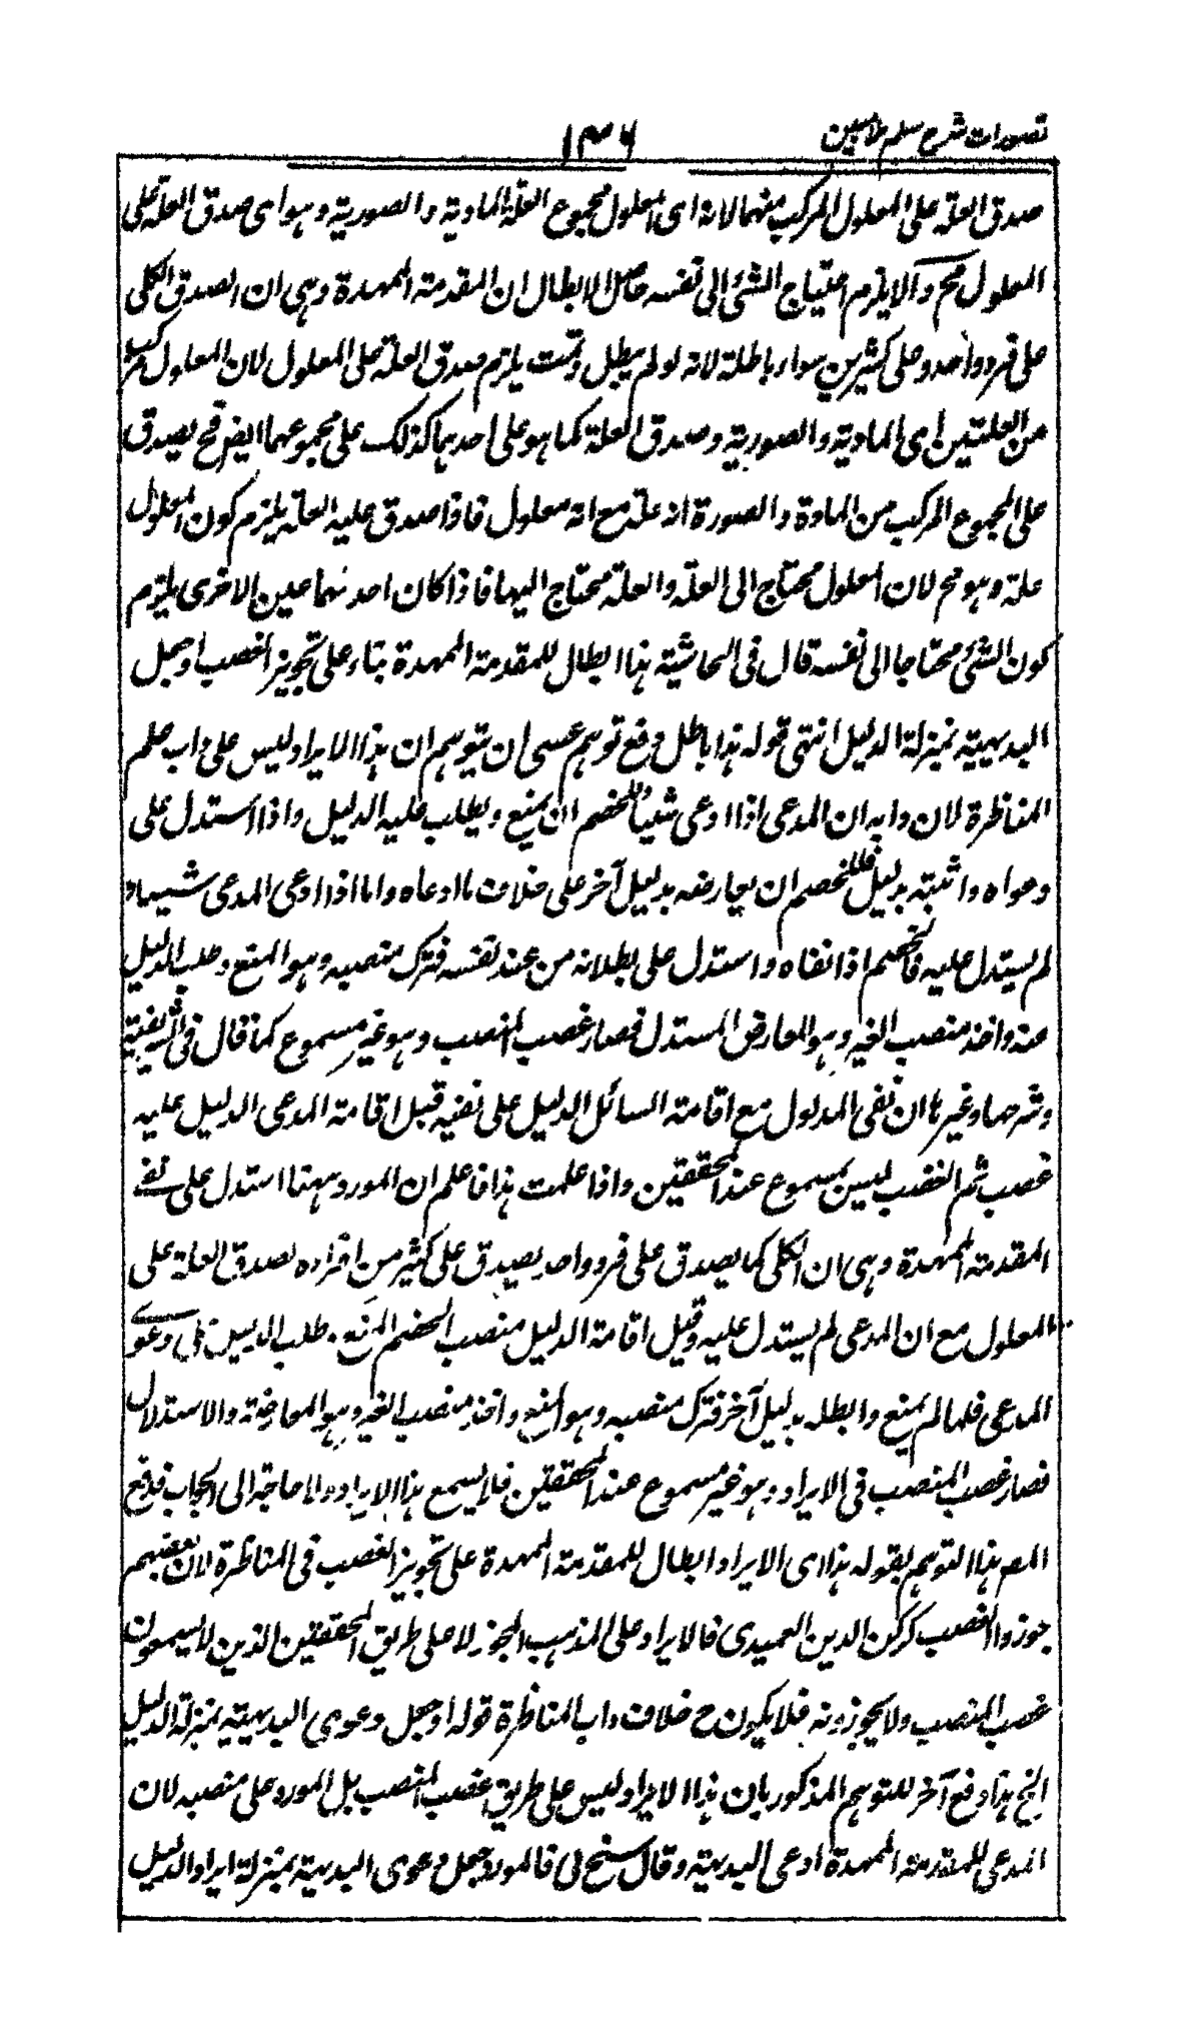 تصورات شرح سلم ملا مبین
١٣٦
صدق العلة على المعلول المركب منهما لانه اى المعلول مجموع العلة المادية والصورية وهو اى صدق العلة على
المعلول مح والا يلزم احتياج الشئ الى نفسه حاصل الابطال ان المقدمة الممهدة وهى ان الصدق الكلى
على فرد واحد وعلى كثيرين سواء باطلة لانه لو لم يبطل وتمت يلزم صدق العلة على المعلول لان المعلول مركب
من العلتين اى المادية والصورية وصدق العلة كما هو على احدهما كذلك على مجموعهما ايضا فح يصدق
على المجموع المركب من المادة والصورة انه علة مع انه معلول فاذا صدق عليه العلة يلزم كون المعلول
علة وهو مح لان المعلول محتاج الى العلة والعلة محتاج اليها فاذا كان احدهما عين الاخرى يلزم
كون الشئ محتاجا الى نفسه قال فى الحاشية هذا ابطال للمقدمة الممهدة بناء على تجويز الغصب او جعل
البديهية بمنزلة الدليل انتهى قوله هذا باطل دفع توهم عسى ان يتوهم ان هذا الايراد ليس على داب علم
المناظرة لان دابه ان المدعى اذا ادعى شيئا للخصم ان يمنع ويطلب عليه الدليل واذا استدل على
دعواه واثبته بدليل فللخصم ان يعارضه بدليل آخر على خلاف ما ادعاه واما اذا ادعى المدعى شيئا و
لم يستدل عليه فالخصم اذا نفاه واستدل على بطلانه من عند نفسه فترك منصبه وهو المنع وطلب الدليل
منه واخذ منصب الغير وهو المعارض المستدل فصار غصب المنصب وهو غير مسموع كما قال فى الشريفية
وشرحها وغيرها ان نفى المدلول مع اقامة السائل الدليل على نفيه قبل اقامة المدعى الدليل عليه
غصب ثم الغصب ليس بمسموع عند المحققين واذا علمت هذا فاعلم ان المورد ههنا استدل على نفى
المقدمة الممهدة وهى ان الكلى كما يصدق على فرد واحد يصدق على كثير من افراده لصدق العلة على
المعلول مع ان المدعى لم يستدل عليه وقبل اقامة الدليل منصب الخصم المنع وطلب الدليل على دعوى
المدعى فلما لم يمنع وابطله بدليل آخر فترك منصبه وهو المنع واخذ منصب الغير وهو المعارضة والاستدلال
فصار غصب المنصب فى الايراد وهو غير مسموع عند المحققين فلا يسمع هذا الايراد ولا حاجة الى الجواب فدفع
المص هذا التوهم بقوله هذا اى الايراد ابطال للمقدمة الممهدة على تجويز الغصب فى المناظرة لان بعضهم
جوزوا الغصب كركن الدين العميدى فالايراد على المذهب المجوز لا على طريق المحققين الذين لا يسمعون
غصب المنصب ولا يجوزونه فلا يكون ح خلاف داب المناظرة قوله او جعل دعوى البديهية بمنزلة الدليل
الخ هذا دفع آخر للتوهم المذكور بان هذا الايراد ليس على طريق غصب المنصب بل المورد على منصبه لان
المدعى للمقدمة الممهدة ادعى البديهية وقال سنح لى فالمورد جعل دعوى البديهية بمنزلة ايراد الدليل